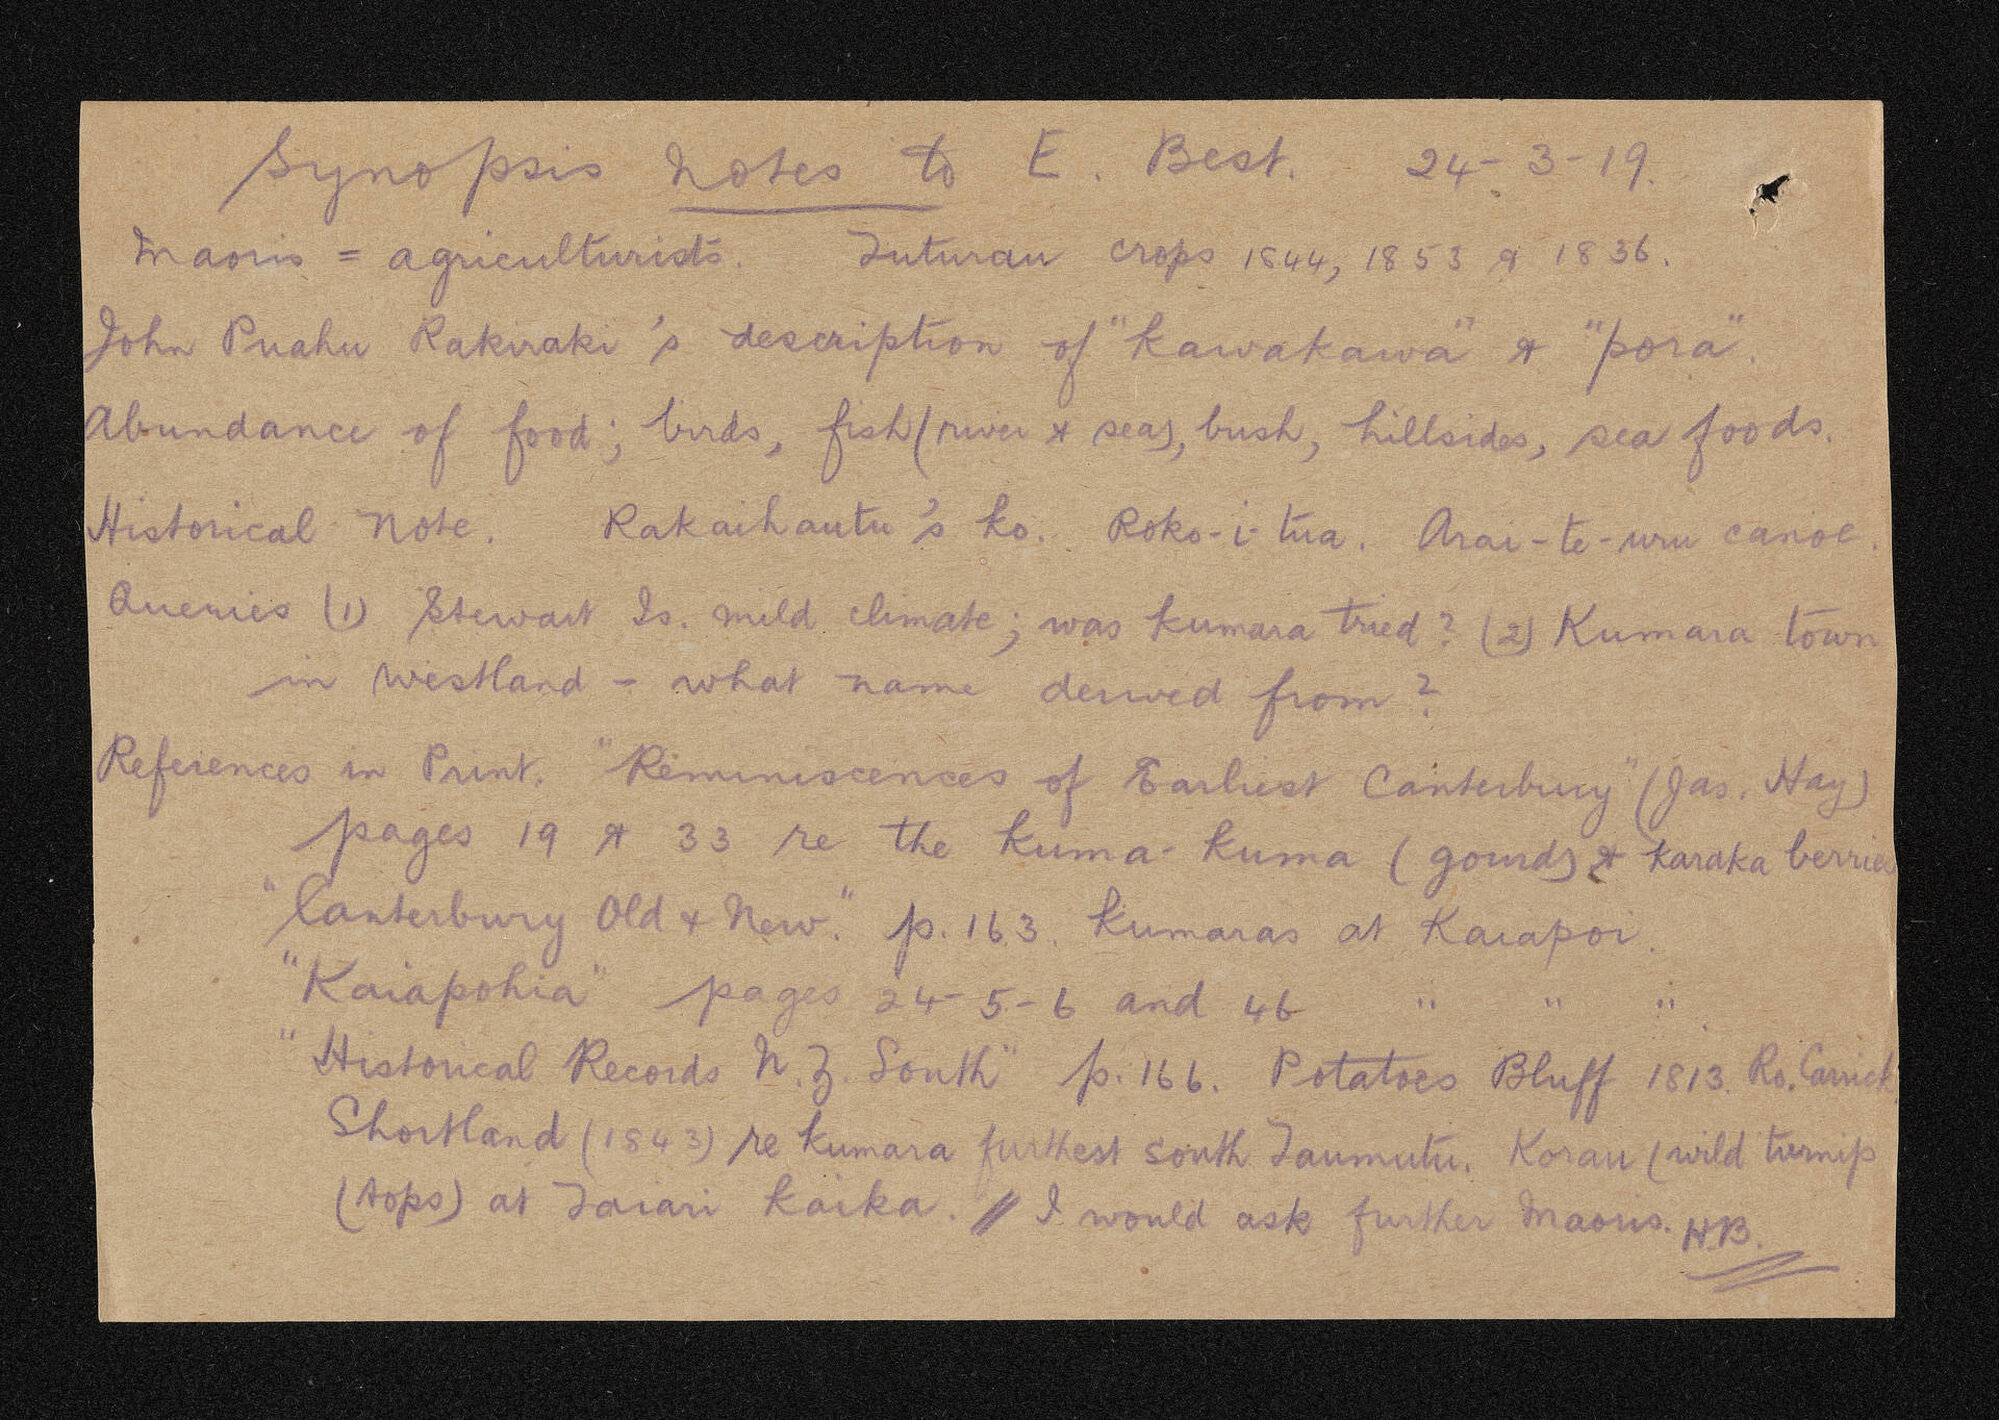 Synopsis Notes to E. Best. 24-3-19.
Maoris = agriculturists. Tuturau crops 1844, 1853 & 1836.
John Puahu Rakiraki's description of "kawakawa" & "pora".
Abundance of food; birds, fish (river & sea), bush, hillsides, sea foods.
Historical Note. Rakaihautu's ko. Roko-i-tua. Arai-te-uru canoe.
Queries (1) Stewart Is. mild climate; was kumara tried? (2) Kumara town
in Westland - what name derived from?
References in Print. "Reminiscences of Earliest Canterbury" (Jas. Hay)
pages 19 & 33 re the kuma-kuma (gourds) & karaka berries
"Canterbury Old & New." p. 163. kumaras at Kaiapoi.
"Kaiapohia" pages 24-5-6 and 46 " " ".
"Historical Records N.Z. South" p. 166. Potatoes Bluff 1813. Ro. Carrick.
Shortland (1843) re kumara furthest south Taumutu. Korau (wild turnip
(tops) at Taiari kaika. // I would ask further Maoris. H.B.